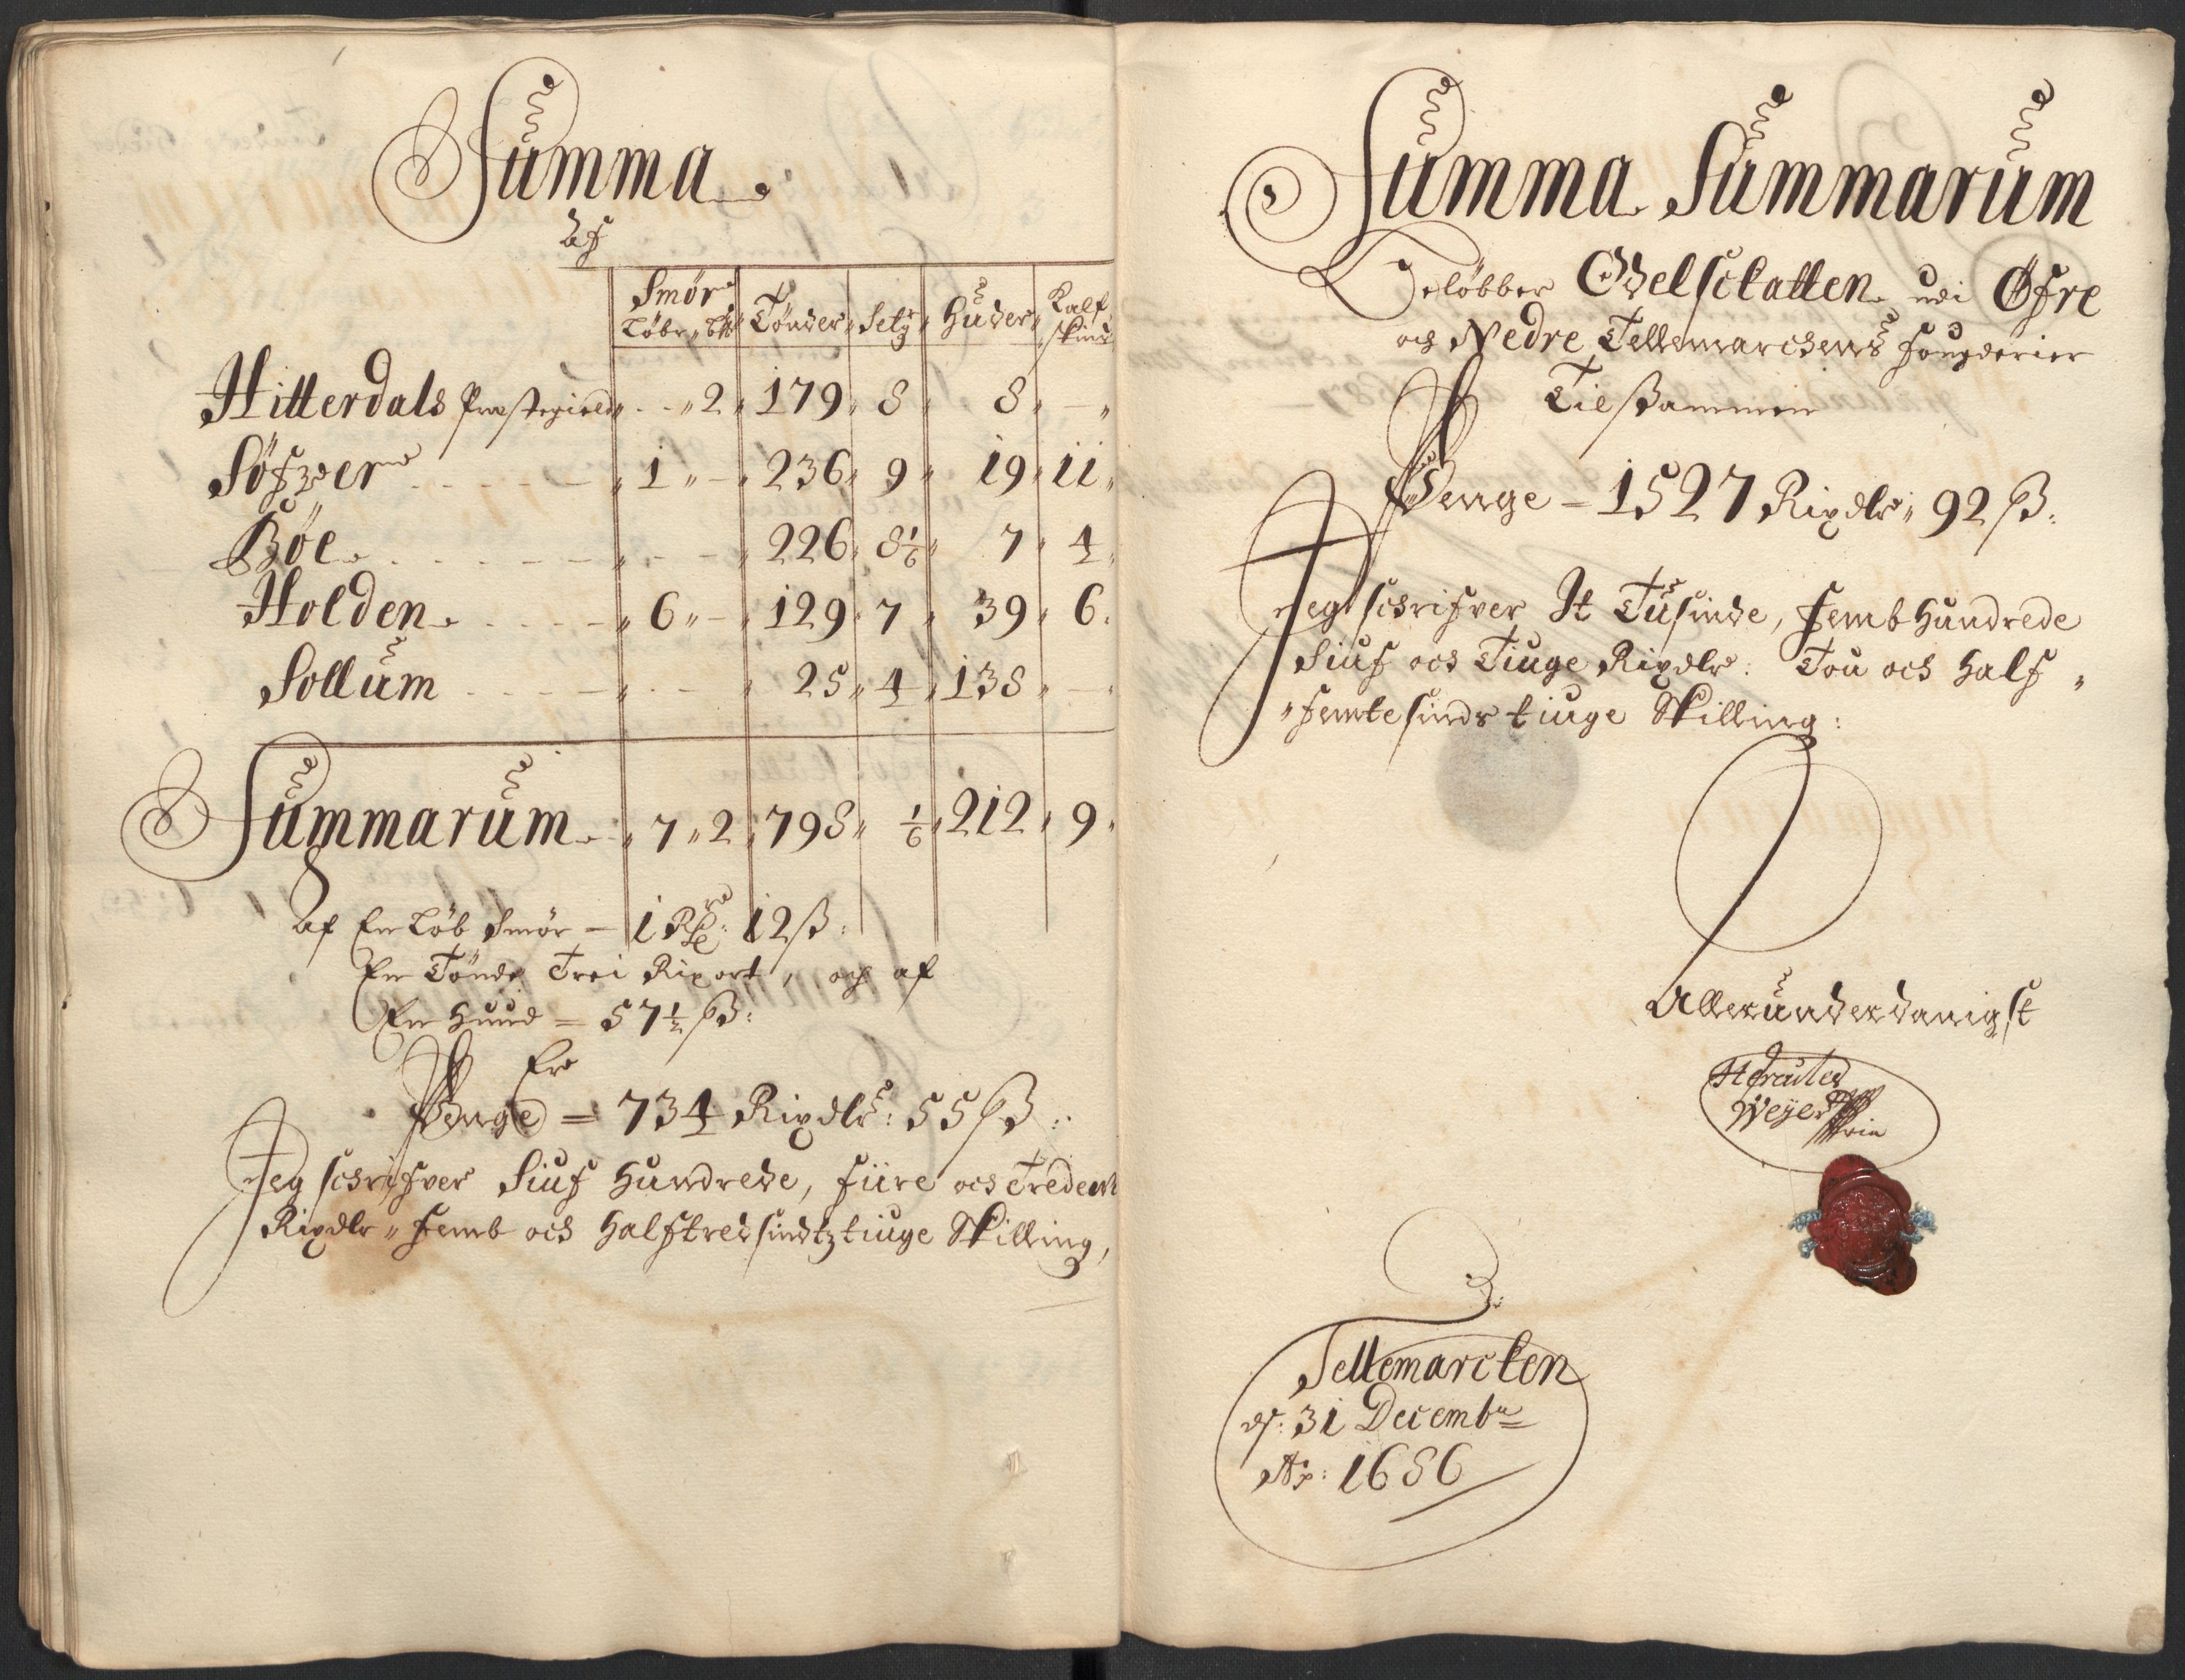 Summa
Af
Smör Tönder Setg Huder Kalf
Löbr " bll skind
Hitterdals Præstegield " - " 2 " 179 " 8 " 8 " - "
Söfzder " 1 " - " 236 " 9 " 19 " 11 "
Böe " - - " 226 " 8 1/6 " 7 " 4 "
Holden " 6 " - " 129 " 7 " 39 " 6 "
Sollum " - - " 25 " 4 " 138 " - "
Summarum " 7 " 2 " 798 " 1/6 " 212 " 9 "
af En Löb Smör – 1 Rdr: 12 ß:
En Tönde Trei Rixort, och af
En Huud = 57 1/2 ß:
Er
Penge = 734 Rixdlr: 55 ß:
Jeg schrifver Siuf Hundrede, fiire och Trede
Rixdlr " femb och halftredsindtztiuge Skilling,
Summa Summarum
Belöbber Odelsckatten udi Øfre
och Nedre Tellemarchens fougderier
Tilßammen
Penge – 1527 Rixdlr " 92 ß:
Jeg schrifver It Tusinde, femb Hundrede
Siuf och Tiuge Rixdlr: Tou och half "
" femtesinds tiuge Skilling:
Allerunderdanigst
Hercules
Weyer
Tellemarcken
df: 31 Decembr
Ao: 1686